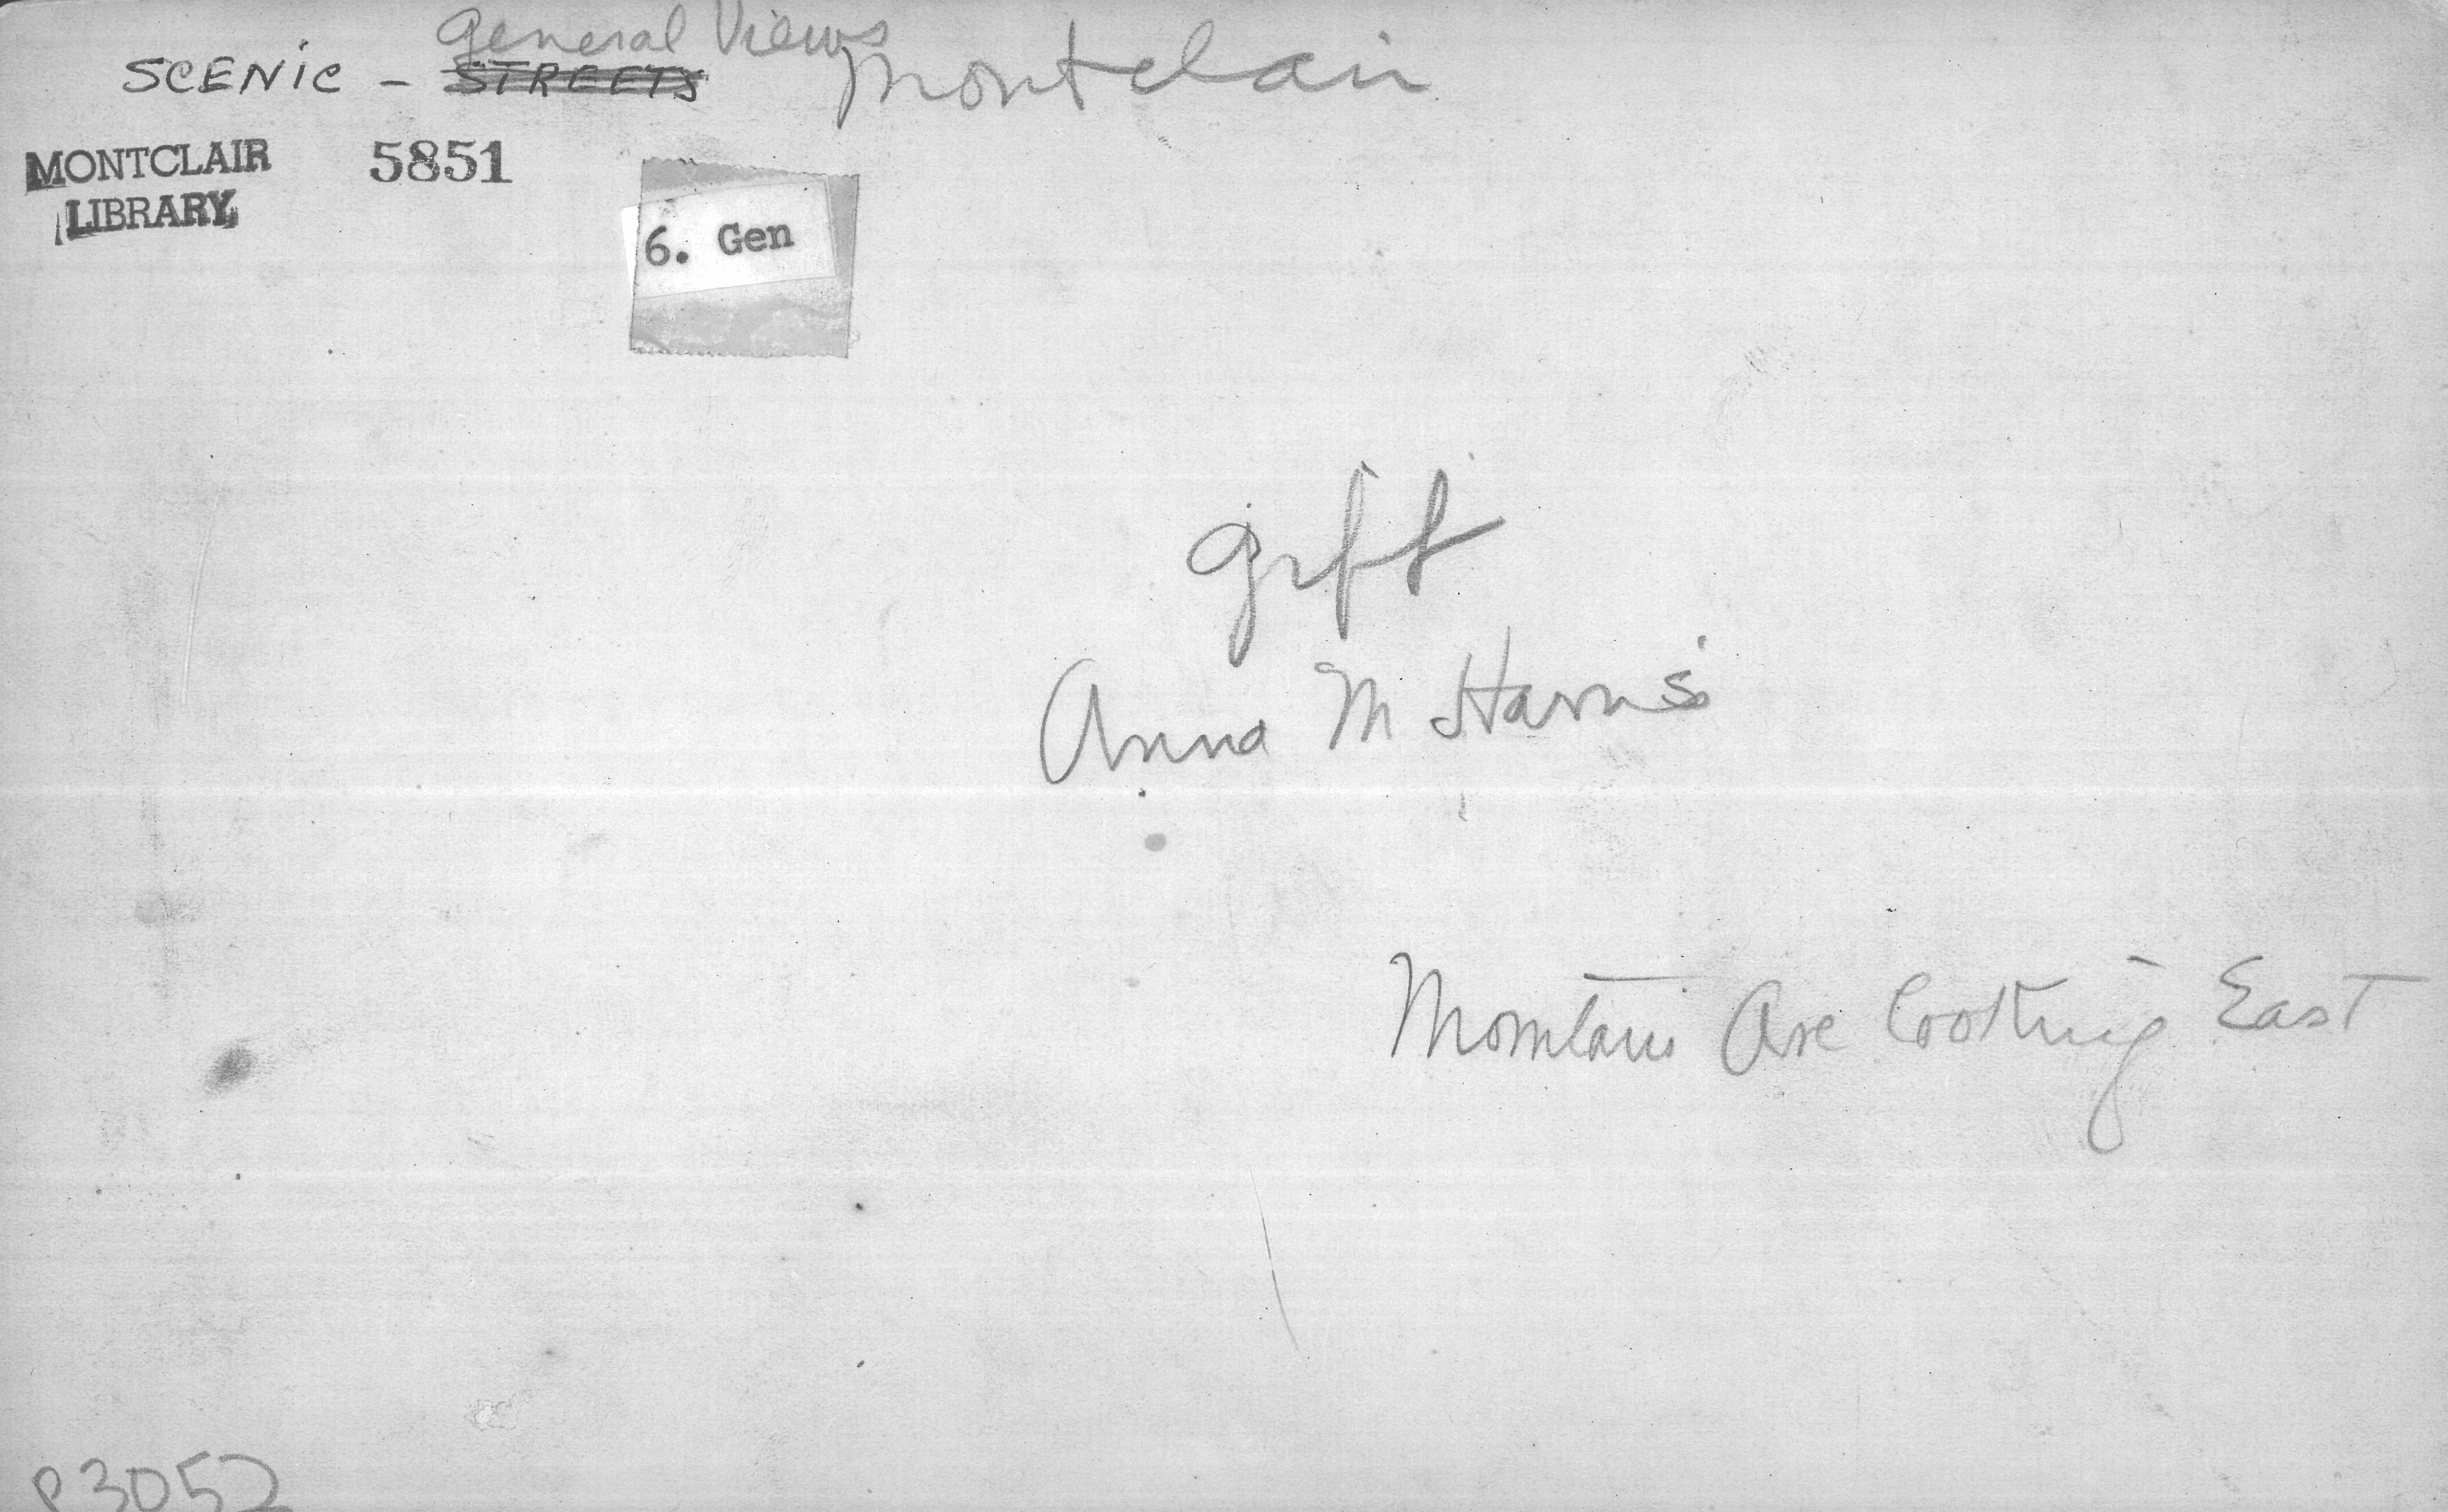 General Views
SCENIC - STREETS Montclair
MONTCLAIR 5851
LIBRARY
6. Gen
Gift
Anna M Harris
Mountain Ave looking East
P3052